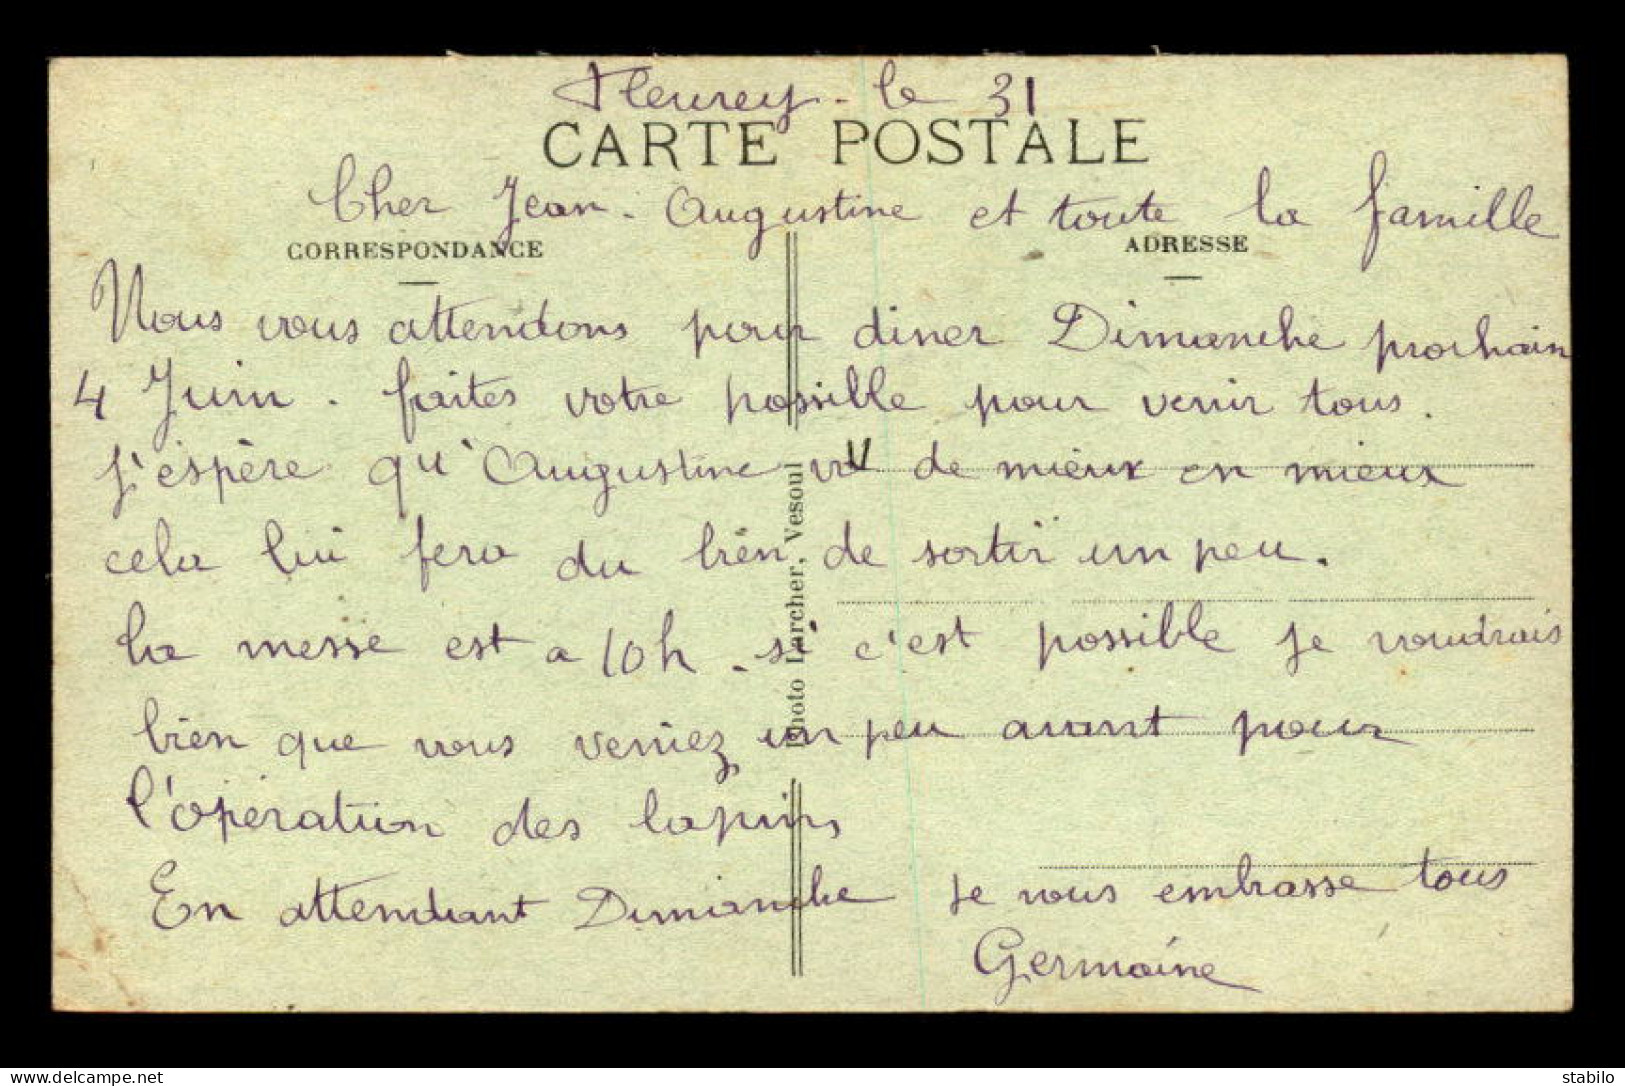 Fleurey - le 31
CARTE POSTALE
Cher Jean - Augustine et toute la famille
CORRESPONDANCE
ADRESSE
Nous vous attendons pour diner Dimanche prochain
4 Juin - faites votre possible pour venir tous.
J'espère qu'Augustine va de mieux en mieux
cela lui fera du bien de sortir un peu.
La messe est a 10h - si c'est possible je voudrais
bien que vous veniez un peu avant pour
l'opération des lapins
En attendant Dimanche je vous embrasse tous
Germaine
Photo Larcher, Vesoul
www.delcampe.net
stabilo